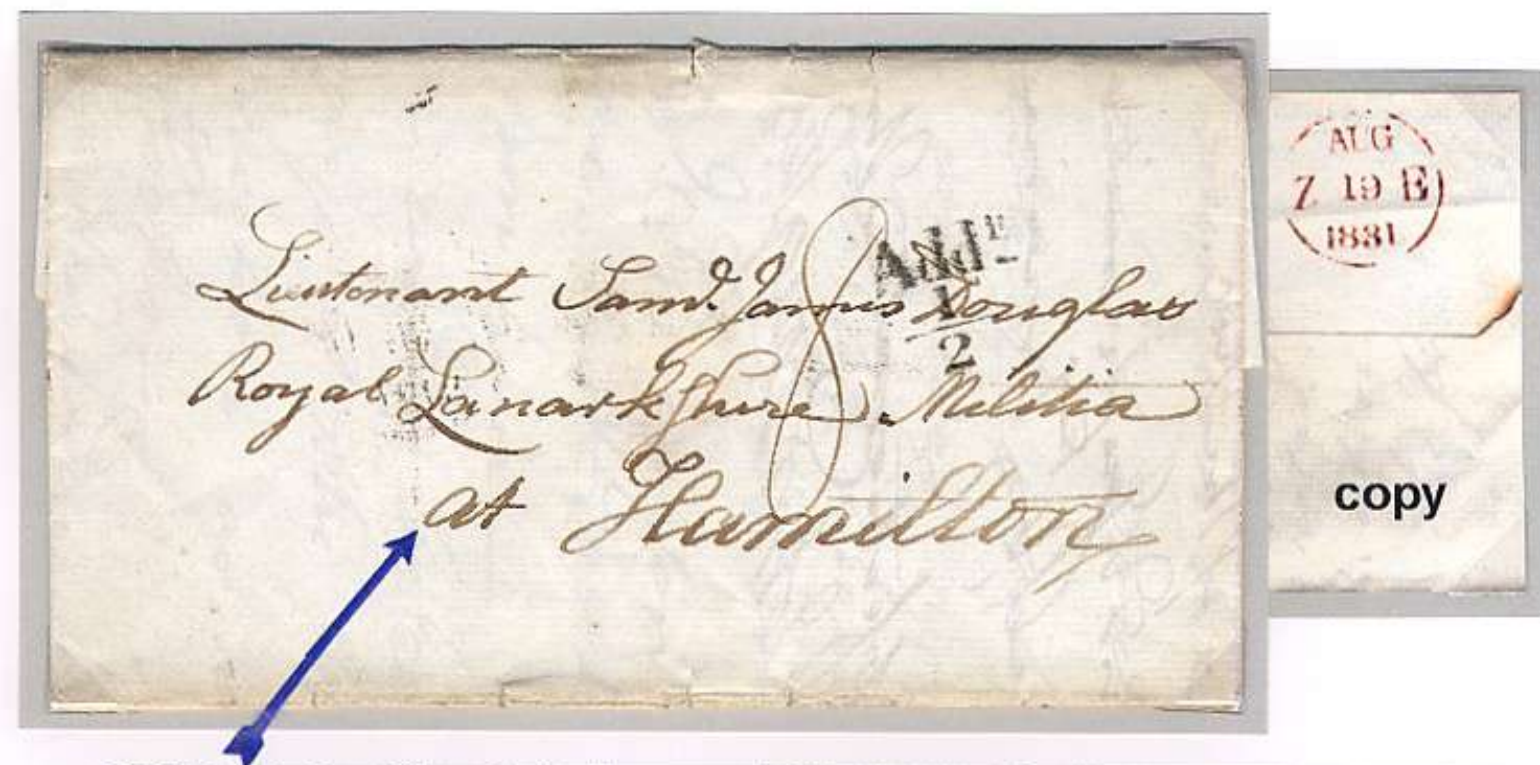 Lieutenant Saml. James Douglas
Royal Lanarkshire Militia
at Hamilton
8
Addl
1
2
AUG
Z 19 E
1831
copy